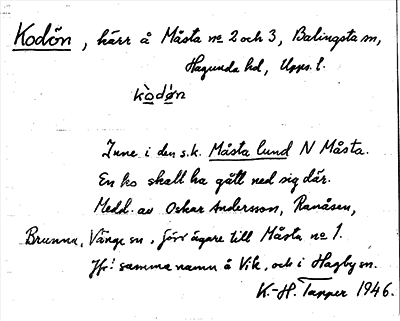 Kodön, kärr å Måsta no 2 och 3, Balingsta sn,
Hagunda hd, Upps. l.
kò̱dö́n
Inne i den s.k. Måsta lund N Måsta.
En ko skall ha gått ned sig där.
Medd. av Oskar Andersson, Ranåsen,
Brunna, Vänge sn, förr ägare till Måsta no 1.
Jfr! samma namn å Vik, och i Hagby sn.
K.-H. Tapper 1946.